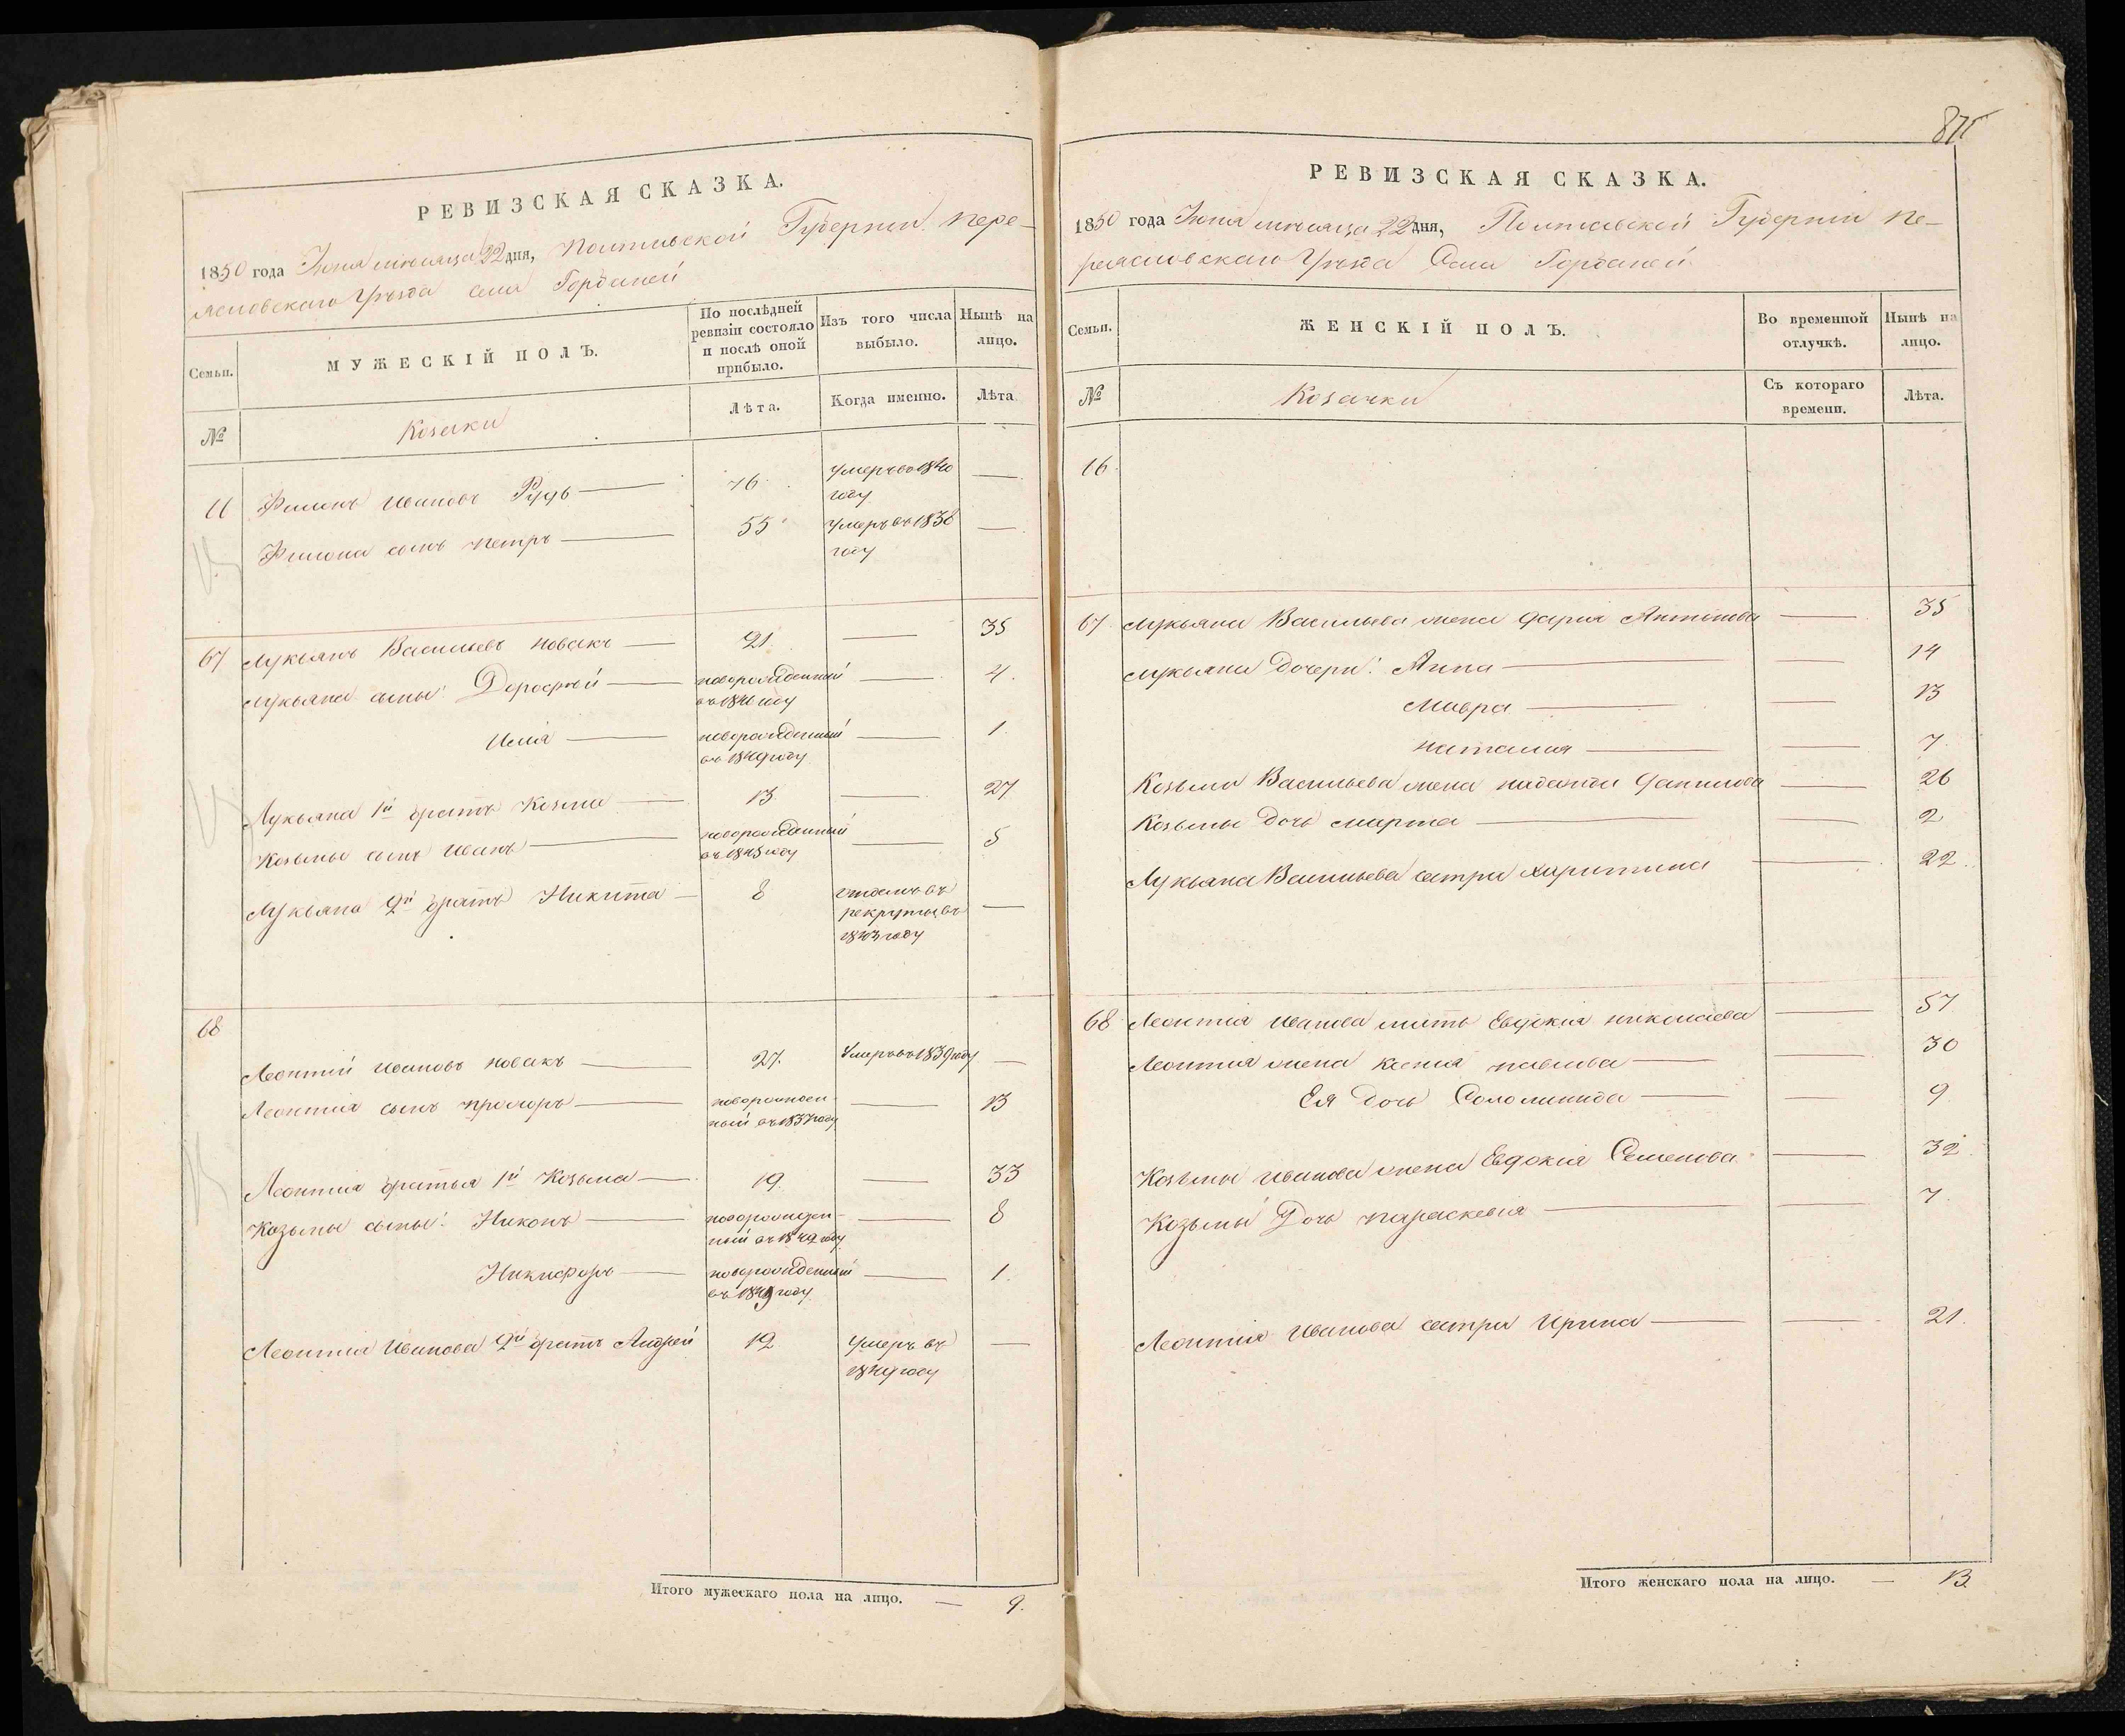 РЕВИЗСКАЯ СКАЗКА.
1850 года Іюня мѣсяца 22 дня, Полтавской Губерніи Пере-
яславскаго Уѣзда Села
Семьи.
МУЖЕСКІЙ ПОЛЪ.
По послѣдней ревизіи состояло и послѣ оной прибыло.
Изъ того числа выбыло.
Нынѣ на лицо.
№
Козаки
Лѣта.
Когда именно.
Лѣта
Филона сынъ Петръ — 55 умеръ въ 1836 году —
67 Лукьянъ Васильевъ Новакъ — 21 — 35
Лукьяна сыны: Дорофѣй — новорожденный въ 1846 году — 4.
Илія — новорожденный въ 1849 году — 1
Лукьяна 1й братъ Козма — 13 — 27
Козьмы сынъ Иванъ — новорожденный въ 1845 году — 5
Лукьяна 2й братъ Никита — 8 отданъ въ рекруты въ 1843 году —
68
Леонтій Ивановъ Новакъ — 27. Умеръ въ 1839 году —
Леонтія сынъ Прохоръ — новорожден-ный въ 1837 году — 13
Леонтія братья 1й Козьма — 19. — 33
Козьмы сыны: Никонъ — новорожден-ный въ 1842 году — 8
Никифоръ — новорожденный въ 1849 году — 1.
Леонтія Иванова 2й братъ Андрей 12 умеръ въ 1849 году —
Итого мужескаго пола на лицо. — 9.
РЕВИЗСКАЯ СКАЗКА.
1850 года Іюня мѣсяца 22 дня, Полтавской Губерніи Пе-
реяславскаго Уѣзда Села
Семьи.
ЖЕНСКІЙ ПОЛЪ.
Во временной отлучкѣ.
Нынѣ на лицо.
№
Козачки
Съ котораго времени.
Лѣта.
67 Лукьяна Васильева жена Дарія Антонова — 35
Лукьяна дочери: Анна — 14
Мавра — 13
Наталия — 7.
Козьмы Васильева жена Данилова — 26
Козьмы дочь Марта — 2
Лукьяна Васильева сестра Харитина — 22.
68 Леонтія Иванова мать Евдокія Николаева — 57
Леонтія жена Ксенія Павлова — 30
Ея дочь Соломинида — 9
Козьмы Иванова жена Евдокія Семенова — 32
Козьмы дочь Параскевія — 7.
Леонтія Иванова сестра Ирина — 21.
Итого женскаго пола на лицо. — 13.